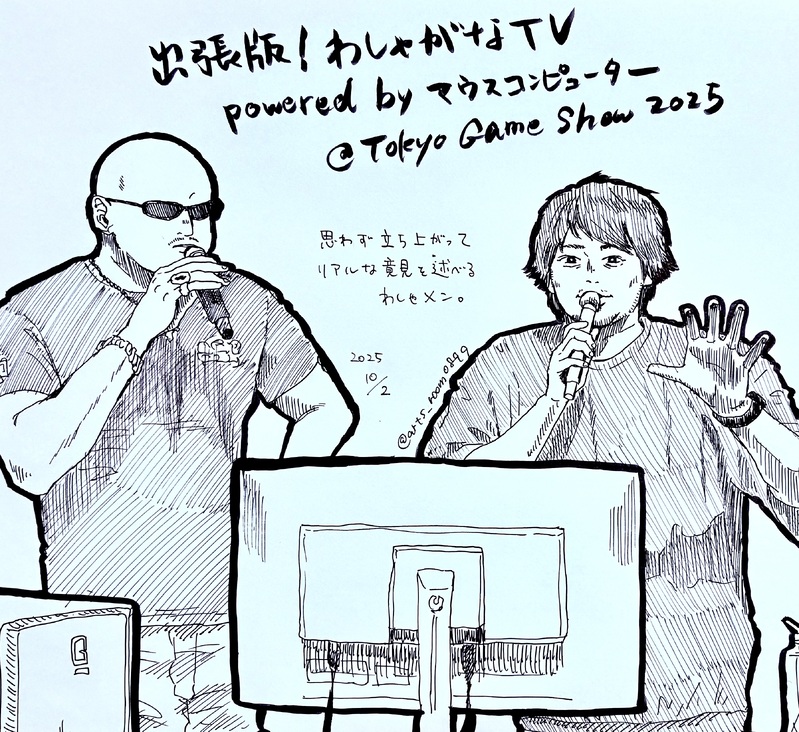 出張版！わしゃがなTV
powered by マウスコンピューター
@Tokyo Game Show 2025
思わず立ち上がって
リアルな意見を述べる
わしゃメン。
2025
10/2
@arts_room0899